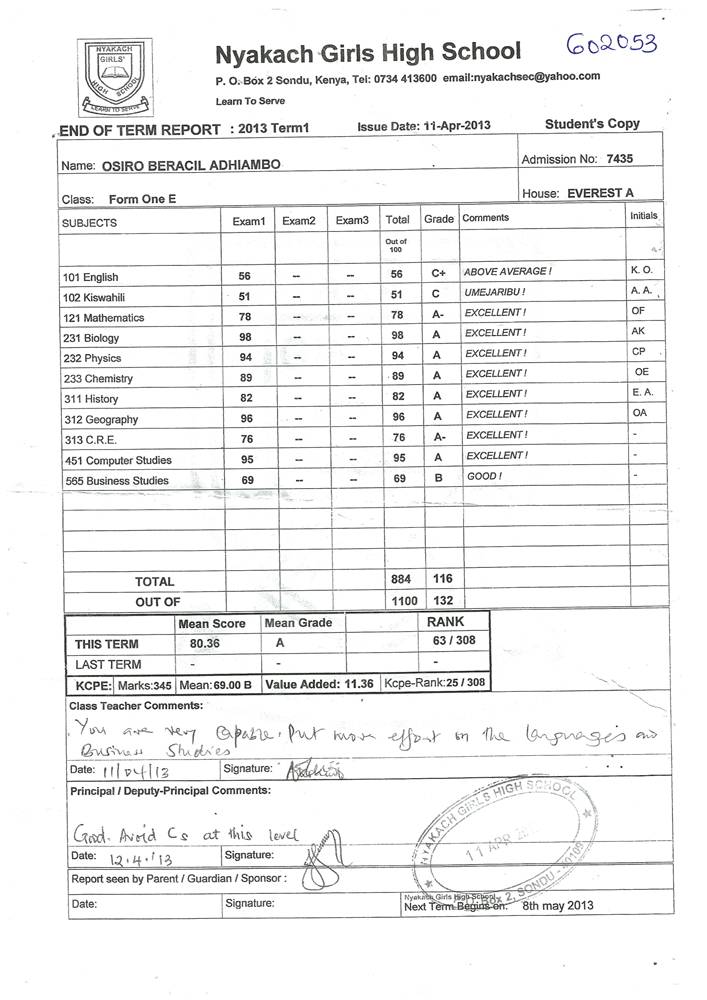 NYAKACH
GIRLS'
HIGH SCHOOL
LEARN TO SERVE
Nyakach Girls High School
602053
P. O. Box 2 Sondu, Kenya, Tel: 0734 413600 email:nyakachsec@yahoo.com
Learn To Serve
END OF TERM REPORT : 2013 Term1 Issue Date: 11-Apr-2013 Student's Copy
Name: OSIRO BERACIL ADHIAMBO Admission No: 7435
Class: Form One E House: EVEREST A
SUBJECTS Exam1 Exam2 Exam3 Total Grade Comments Initials
Out of
100
101 English 56 -- -- 56 C+ ABOVE AVERAGE ! K. O.
102 Kiswahili 51 -- -- 51 C UMEJARIBU ! A. A.
121 Mathematics 78 -- -- 78 A- EXCELLENT ! OF
231 Biology 98 -- -- 98 A EXCELLENT ! AK
232 Physics 94 -- -- 94 A EXCELLENT ! CP
233 Chemistry 89 -- -- 89 A EXCELLENT ! OE
311 History 82 -- -- 82 A EXCELLENT ! E. A.
312 Geography 96 -- -- 96 A EXCELLENT ! OA
313 C.R.E. 76 -- -- 76 A- EXCELLENT ! -
451 Computer Studies 95 -- -- 95 A EXCELLENT ! -
565 Business Studies 69 -- -- 69 B GOOD ! -
TOTAL 884 116
OUT OF 1100 132
Mean Score Mean Grade RANK
THIS TERM 80.36 A 63 / 308
LAST TERM - - -
KCPE: Marks:345 Mean:69.00 B Value Added: 11.36 Kcpe-Rank:25 / 308
Class Teacher Comments:
You are very capable. Put more effort on the languages and
Business Studies
Date: 11/04/13 Signature:
Principal / Deputy-Principal Comments:
Good. Avoid Cs at this level
Date: 12.4.'13 Signature:
NYAKACH GIRLS HIGH SCHOOL
11 APR
Box 2, SONDU - 40109
Report seen by Parent / Guardian / Sponsor :
Date: Signature: Nyakach Girls High School
Next Term Begins on: 8th may 2013